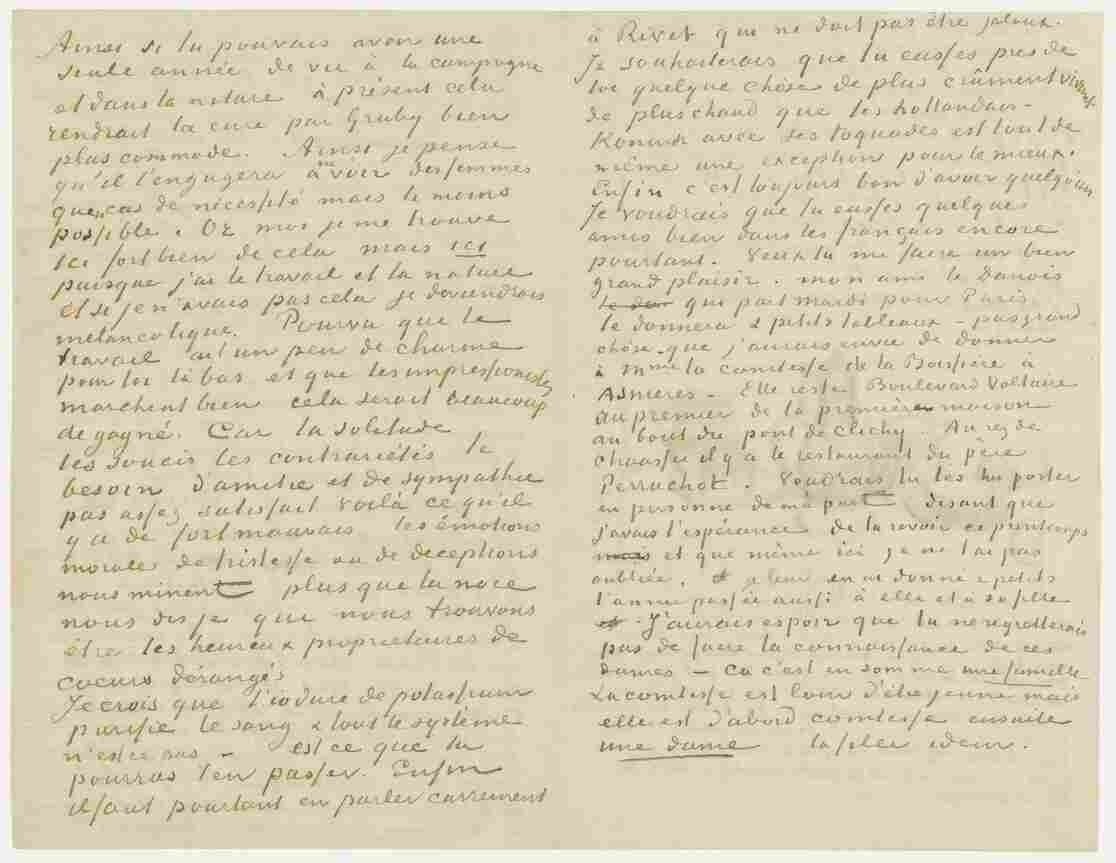 Ainsi si tu pouvais avoir une
seule année de vie à la campagne
et dans la nature à présent cela
rendrait la cure par Gruby bien
plus commode. Ainsi je pense
qu'il t'engagera à ne voir des femmes
que en cas de nécessité mais le moins
possible. Or moi je me trouve
ici fort bien de cela mais ici
puisque j'ai le travail et la nature
et si je n'avais pas cela je deviendrais
mélancolique. Pourvu que le
travail ait un peu de charme
pour toi là bas et que les impressionistes
marchent bien cela serait beaucoup
de gagné. Car la solitude
les soucis les contrariétés le
besoin d'amitié et de sympathie
pas assez satisfait voilà ce qu'il
y a de fort mauvais les émotions
morales de tristesse ou de deceptions
nous minent plus que la noce
nous dis je que nous trouvons
être les heureux propriétaires de
coeurs dérangés
Je crois que l'iodure de potassium
purifie le sang & tout le système
n'est ce pas – est ce que tu
pourras t'en passer. Enfin
il faut pourtant en parler carrement
à Rivet qui ne doit pas être jaloux.
Je souhaiterais que tu eusses près de
toi quelque chôse de plus crûment vivant
de plus chaud que les hollandais –
Koning avec ses toquades est tout de
même une exception pour le mieux.
Enfin c'est toujours bon d'avoir quelqu'un
Je voudrais que tu eusses quelques
amis bien dans les français encore
pourtant. Veux tu me faire un bien
grand plaisir. mon ami le Danois
qui part mardi pour Paris
te donnera 2 petits tableaux – pas grand
chôse – que j'aurais envie de donner
à Mme la comtesse de la Boissière à
Asnieres – Elle reste Boulevard Voltaire
au premier de la première maison
au bout du pont de Clichy. Au rez de
chaussee il y a le restaurant du père
Perruchot. Voudrais tu les lui porter
en personne de ma part disant que
j'avais l'espérance de la revoir ce printemps
et que même ici je ne l'ai pas
oubliée. je leur en ai donné 2 petits
l'annee passée aussi à elle et à sa fille
J'aurais espoir que tu ne regretterais
pas de faire la connaissance de ces
dames – Ca c'est en somme une famille
La comtesse est loin d'être jeune mais
elle est d'abord comtesse ensuite
une dame la fille idem.